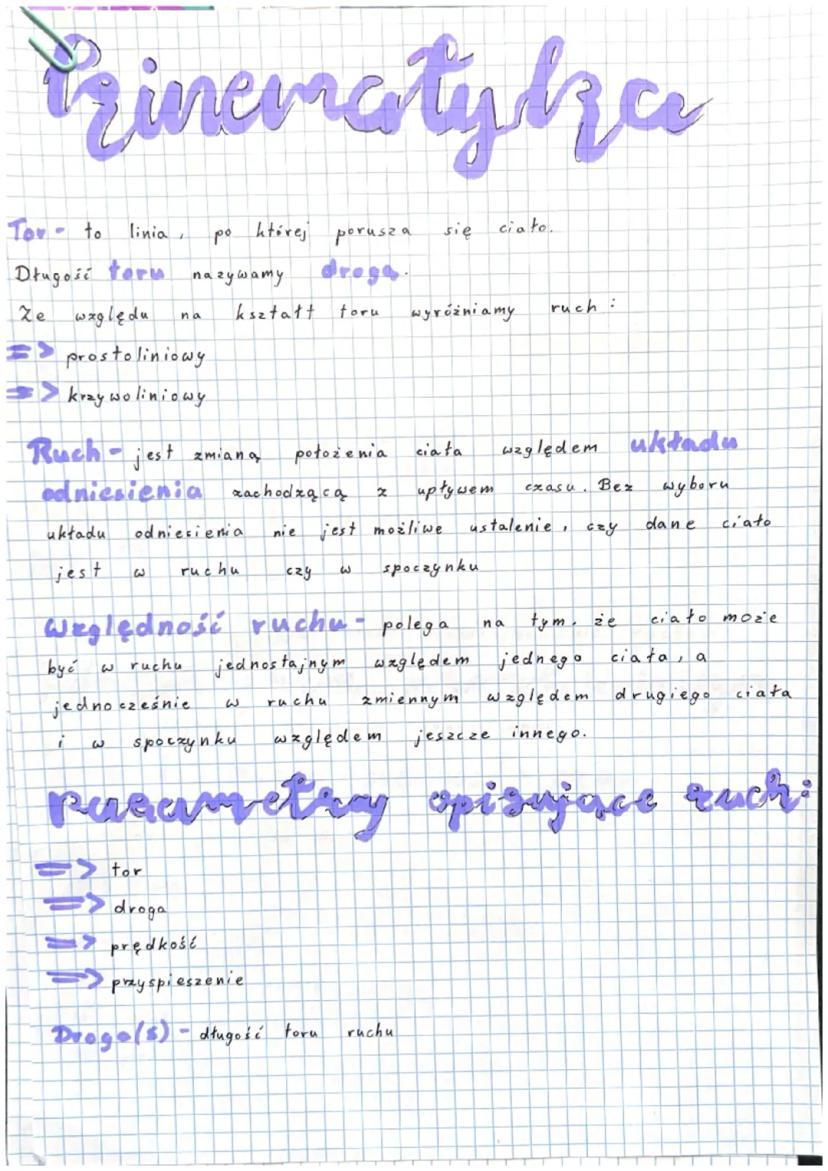 Kinematyka
Tor - to linia, po której porusza się ciało.
Długość toru nazywamy drogą.
Ze względu na kształt toru wyróżniamy ruch:
=> prostoliniowy
=> krzywoliniowy
Ruch - jest zmianą położenia ciała względem układu
odniesienia zachodzącą z upływem czasu. Bez wyboru
układu odniesienia nie jest możliwe ustalenie, czy dane ciało
jest w ruchu czy w spoczynku
Względność ruchu - polega na tym, że ciało może
być w ruchu jednostajnym względem jednego ciała, a
jednocześnie w ruchu zmiennym względem drugiego ciała
i w spoczynku względem jeszcze innego.
parametry opisujące ruch:
=> tor
=> droga
=> prędkość
=> przyspieszenie
Droga(s) - długość toru ruchu